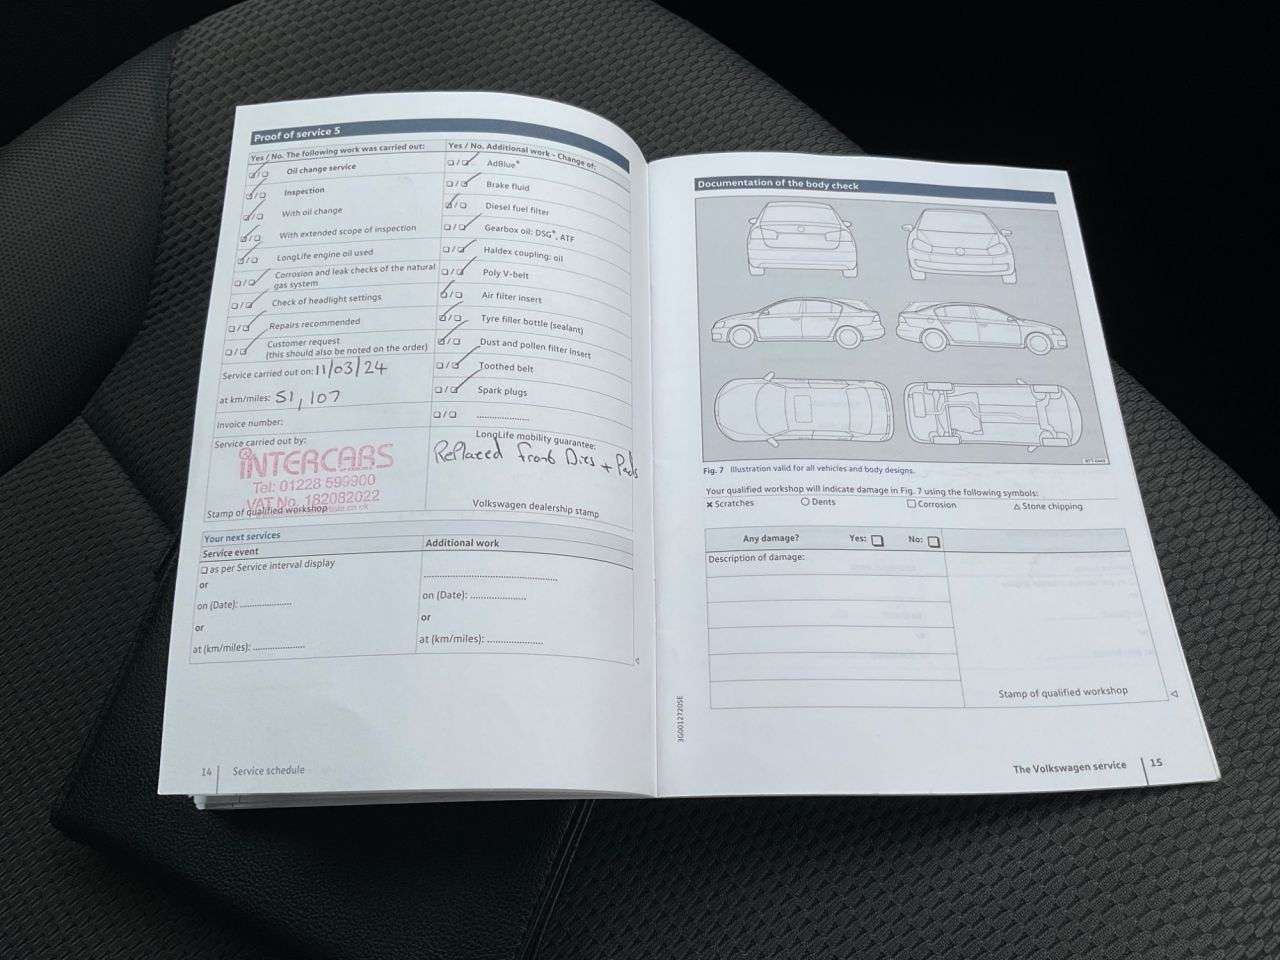 Proof of service 5
Yes / No. The following work was carried out:
Oil change service
Inspection
With oil change
With extended scope of inspection
LongLife engine oil used
Corrosion and leak checks of the natural
gas system
Check of headlight settings
Repairs recommended
Customer request
(this should also be noted on the order)
Service carried out on: 11/03/24
at km/miles: 51,107
Invoice number:
Service carried out by:
INTERCARS
Tel: 01228 599900
VAT No. 182082022
Stamp of qualified workshop
Yes / No. Additional work - Change of:
AdBlue®
Brake fluid
Diesel fuel filter
Gearbox oil: DSG®, ATF
Haldex coupling: oil
Poly V-belt
Air filter insert
Tyre filler bottle (sealant)
Dust and pollen filter insert
Toothed belt
Spark plugs
LongLife mobility guarantee:
Replaced front Discs + Pads
Volkswagen dealership stamp
Your next services
Service event
as per Service interval display
or
on (Date):
or
at (km/miles):
Additional work
on (Date):
or
at (km/miles):
14 Service schedule
Documentation of the body check
Fig. 7 Illustration valid for all vehicles and body designs.
Your qualified workshop will indicate damage in Fig. 7 using the following symbols:
× Scratches ○ Dents □ Corrosion △ Stone chipping
Any damage? Yes: □ No: □
Description of damage:
Stamp of qualified workshop
3G0012720SE
The Volkswagen service 15